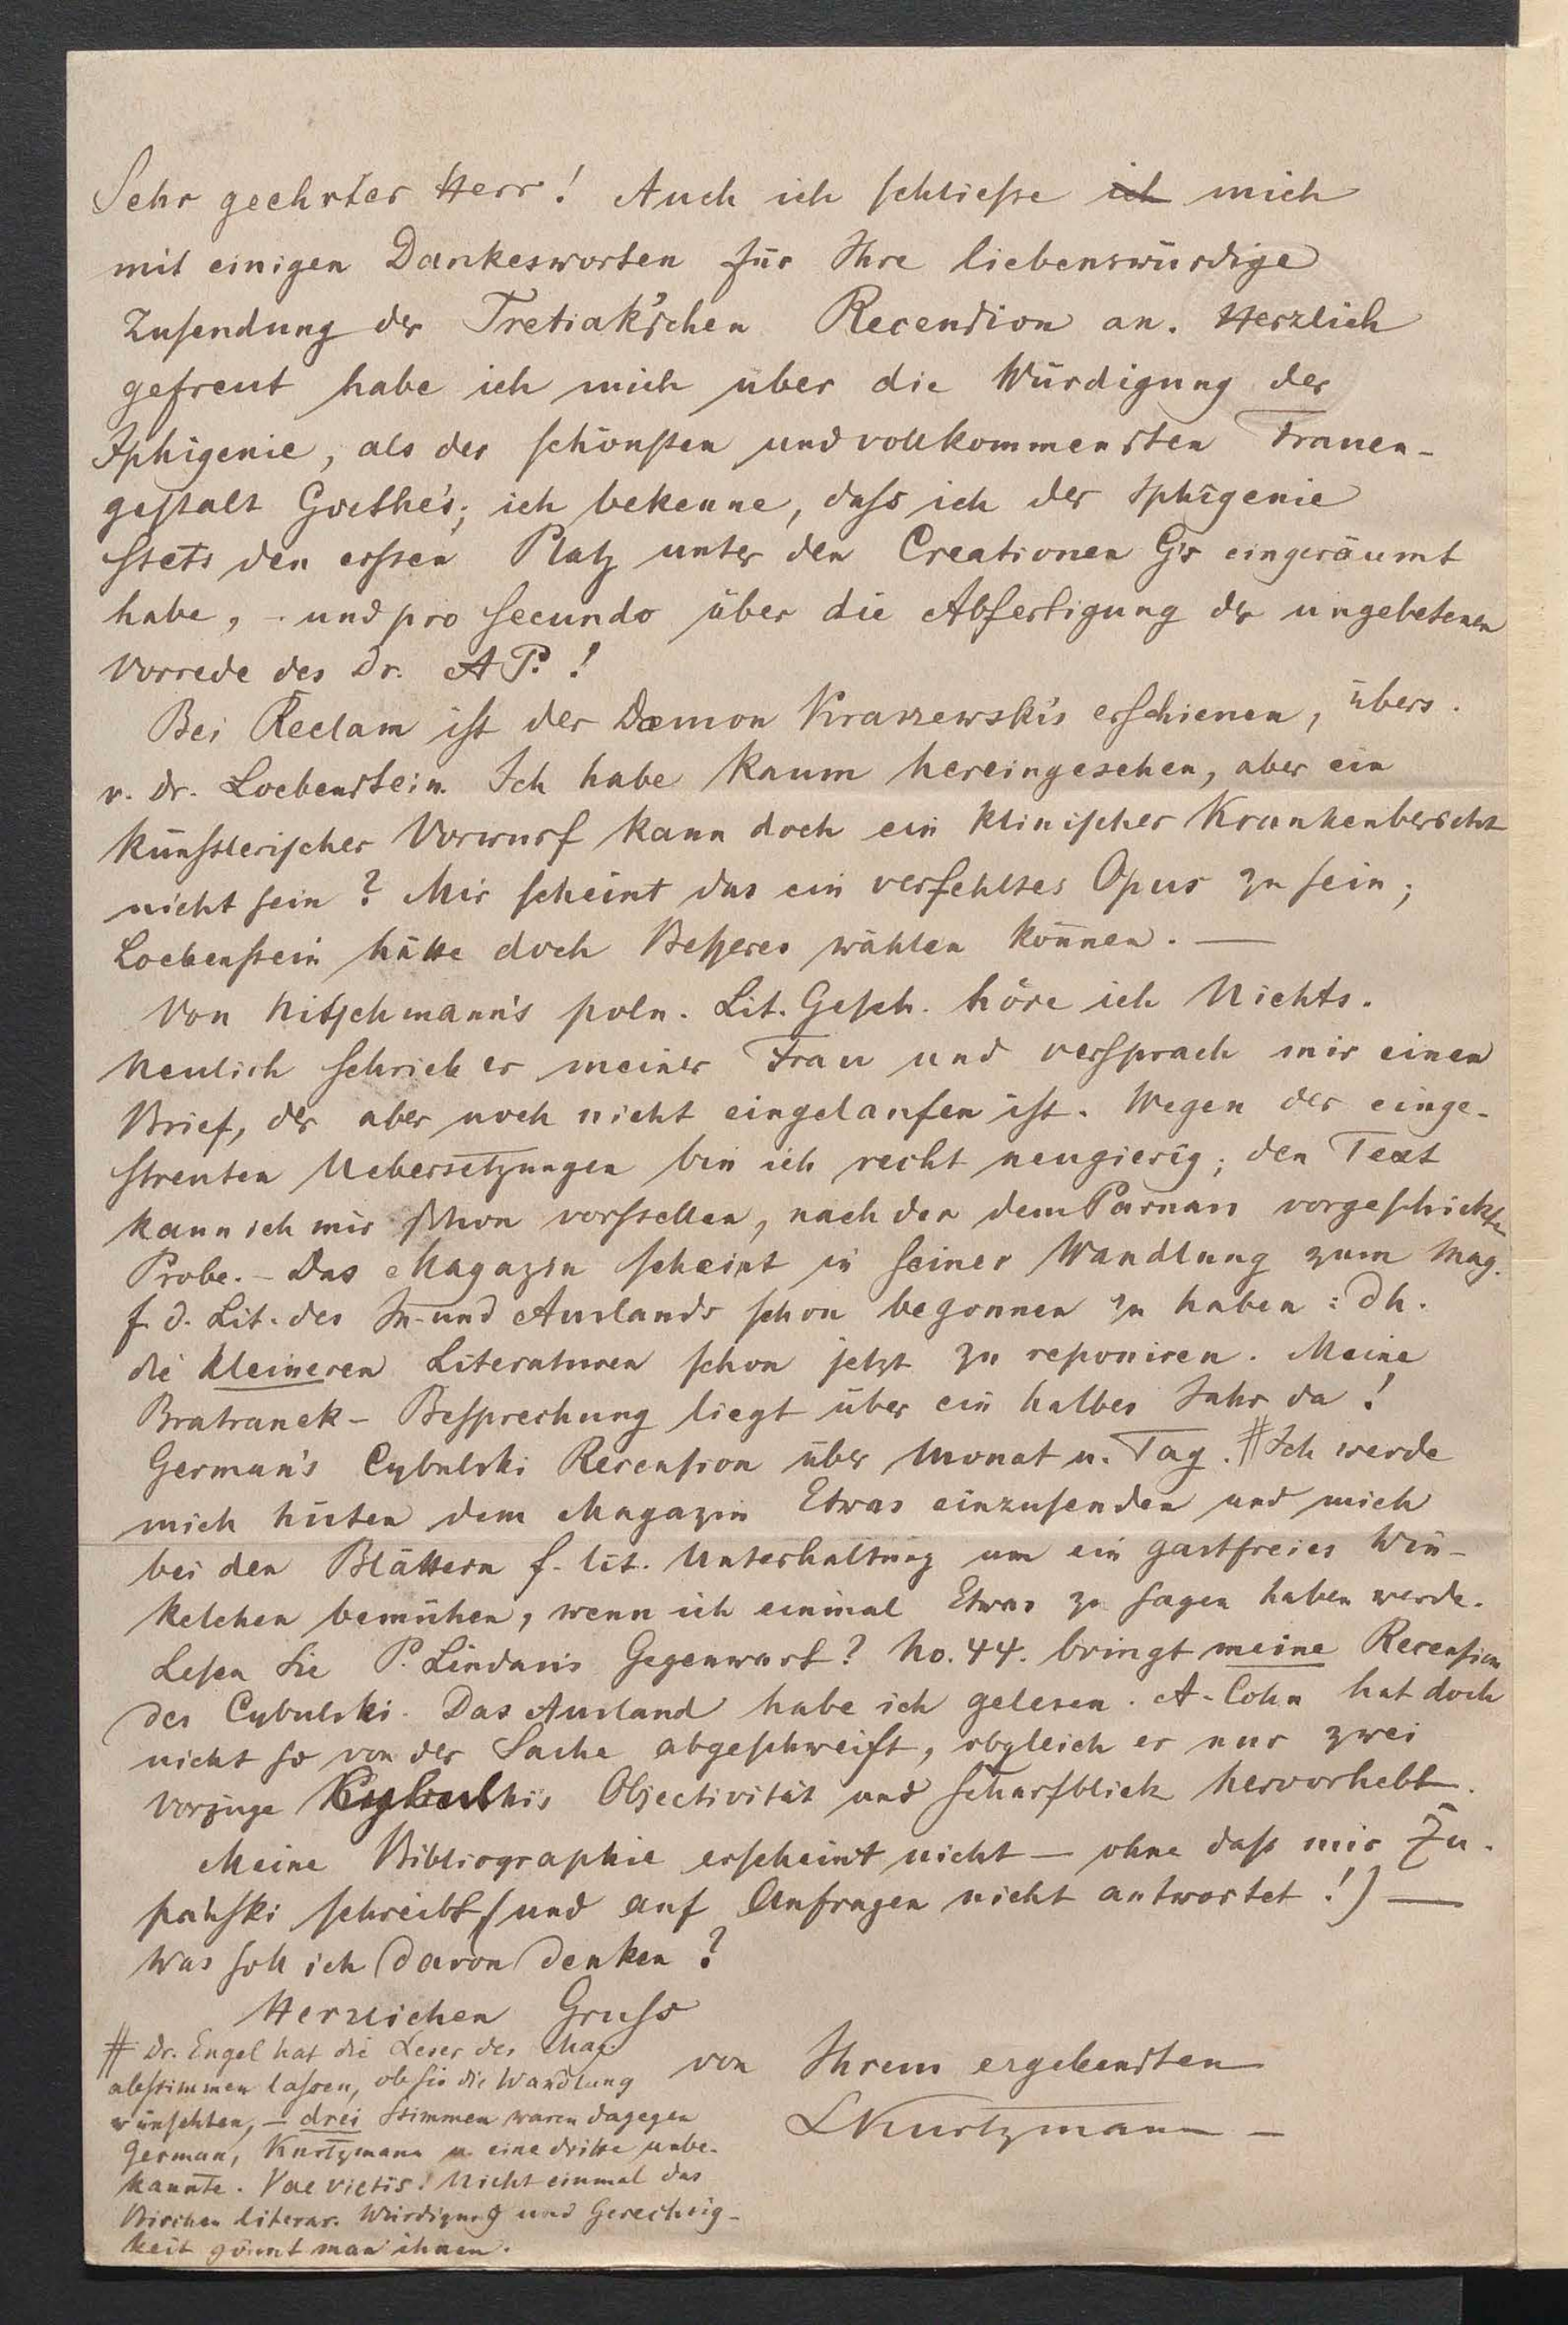 Sehr geehrter Herr! Auch ich schließe ich mich
mit einigen Dankesworten für Ihre liebenswürdige
Zusendung der Tretiak'schen Recension an. Herzlich
gefreut habe ich mich über die Würdigung der
Iphigenie, als der schönsten und vollkommensten Frauen-
gestalt Goethe's; ich bekenne, dass ich der Iphigenie
stets den ersten Platz unter den Creationen G's eingeräumt
habe, - und pro secundo über die Abfertigung der ungebetenen
Vorrede des Dr. A P. !
Bei Reclam ist der Dæmon Kraszewski's erschienen, übers.
v. Dr. Loebenstein. Ich habe kaum hereingesehen, aber ein
künstlerischer Vorwurf kann doch ein klinischer Krankenbericht
nicht sein? Mir scheint das ein verfehltes Opus zu sein;
Loebenstein hätte doch Besseres wählen können. —
Von Nitschmann's poln. Lit. Gesch. höre ich Nichts.
Neulich schrieb er meiner Frau und versprach mir einen
Brief, der aber noch nicht eingelaufen ist. Wegen der einge-
streuten Uebersetzungen bin ich recht neugierig; den Text
kann ich mir schon vorstellen, nach der dem Parnass vorgeschickten
Probe. - Das Magazin scheint in seiner Wandlung zum Mag.
f. d. Lit. des In- und Auslands schon begonnen zu haben: dh.
die kleineren Literaturen schon jetzt zu reponiren. Meine
Bratranek - Besprechung liegt über ein halbes Jahr da!
German's Cybulski Recension über Monat u. Tag. # Ich werde
mich hüten dem Magazin Etwas einzusenden und mich
bei den Blättern f. lit. Unterhaltung um ein gastfreies Win-
kelchen bemühen, wenn ich einmal Etwas zu sagen haben werde.
Lesen Sie P. Lindau's Gegenwart? No. 44. bringt meine Recension
des Cybulski. Das Ausland habe ich gelesen. A. Cohn hat doch
nicht so von der Sache abgeschweift, obgleich er nur zwei
Vorzüge Cybulskis Objectivität und Scharfblick hervorhebt.
Meine Bibliographie erscheint nicht — ohne dass mir Żu-
pański schreibt (und auf Anfragen nicht antwortet!) —
Was soll ich davon denken?
Herzlichen Gruss
von Ihrem ergebensten
LKurtzmann —
# Dr. Engel hat die Leser des Mag.
abstimmen lassen, ob sie die Wandlung
wünschten, - drei Stimmen waren dagegen
German, Kurtzmann u. eine dritte unbe-
kannte. Vae victis! Nicht einmal das
Bischen literar. Würdigung und Gerechtig-
keit gönnt man ihnen.